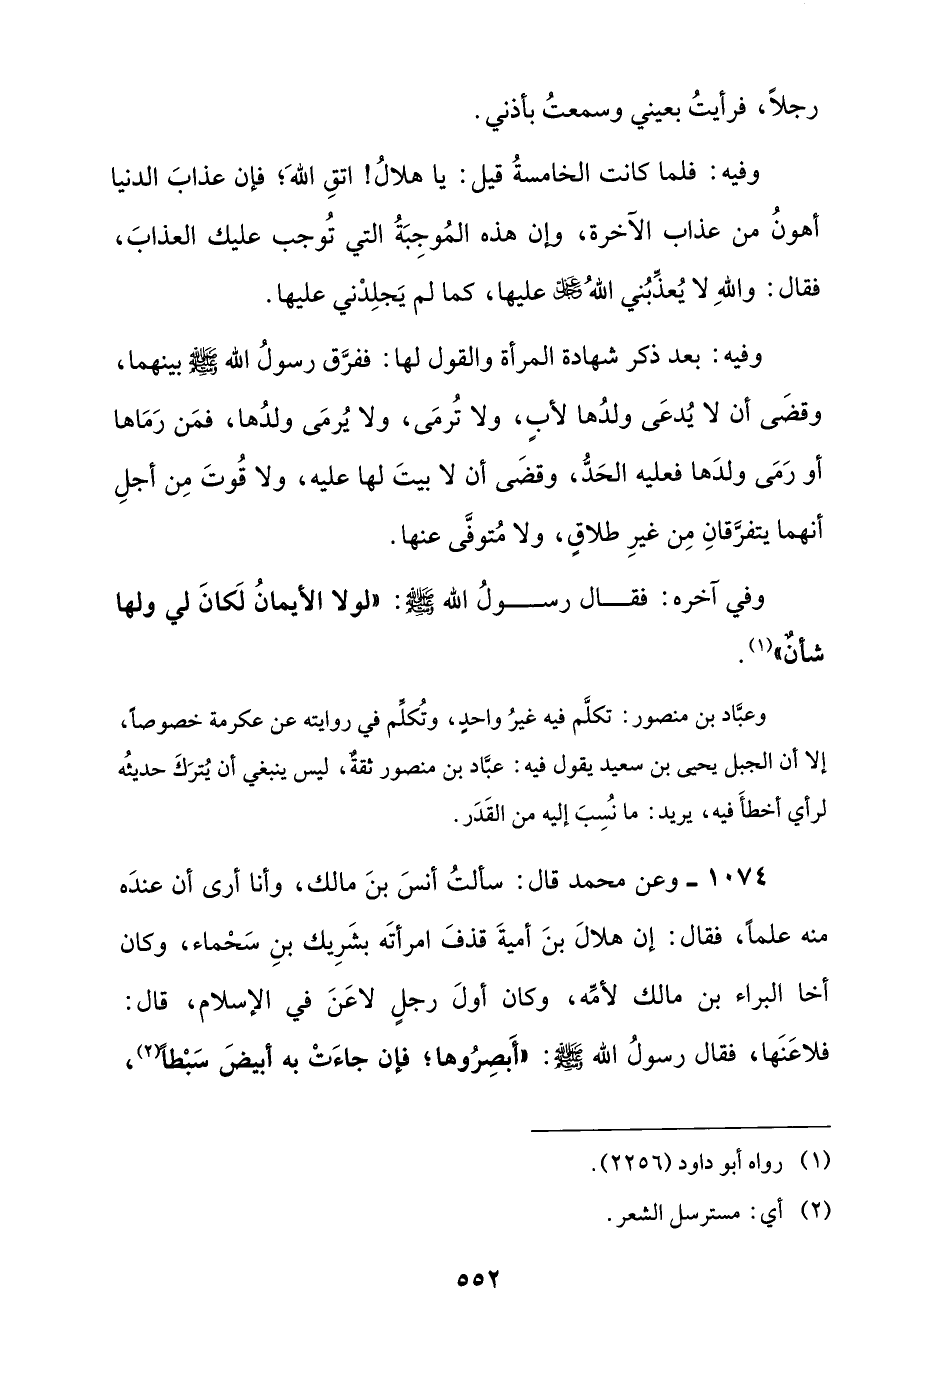 رجلاً، فرأيتُ بعيني وسمعتُ بأذني.
وفيه: فلما كانت الخامسةُ قيل: يا هلالُ! اتقِ اللهَ؛ فإن عذابَ الدنيا
أهونُ من عذاب الآخرة، وإن هذه المُوجِبَةُ التي تُوجب عليك العذابَ،
فقال: واللهِ لا يُعذِّبُني اللهُ ﷿ عليها، كما لم يَجلِدْني عليها.
وفيه: بعد ذكر شهادة المرأة والقول لها: ففرَّق رسولُ الله ﷺ بينهما،
وقضَى أن لا يُدعَى ولدُها لأبٍ، ولا تُرمَى، ولا يُرمَى ولدُها، فمَن رَمَاها
أو رَمَى ولدَها فعليه الحَدُّ، وقضَى أن لا بيتَ لها عليه، ولا قُوتَ مِن أجلِ
أنهما يتفرَّقانِ مِن غيرِ طلاقٍ، ولا مُتوفَّى عنها.
وفي آخره: فقـــال رســـولُ الله ﷺ: «لولا الأيمانُ لَكانَ لي ولها
شأنٌ»(١).
وعبَّاد بن منصور: تكلَّم فيه غيرُ واحدٍ، وتُكلِّم في روايته عن عكرمة خصوصاً،
إلا أن الجبل يحيى بن سعيد يقول فيه: عبَّاد بن منصور ثقةٌ، ليس ينبغي أن يُترَكَ حديثُه
لرأي أخطأَ فيه، يريد: ما نُسِبَ إليه من القَدَر.
١٠٧٤ ـ وعن محمد قال: سألتُ أنسَ بنَ مالك، وأنا أرى أن عندَه
منه علماً، فقال: إن هلالَ بنَ أميةَ قذفَ امرأتَه بشَرِيك بنِ سَحْماء، وكان
أخا البراء بن مالك لأمِّه، وكان أولَ رجلٍ لاعَنَ في الإسلام، قال:
فلاعَنَها، فقال رسولُ الله ﷺ: «أَبصِرُوها؛ فإن جاءَتْ به أبيضَ سَبْطاً(٢)،
(١) رواه أبو داود (٢٢٥٦).
(٢) أي: مسترسل الشعر.
٥٥٢